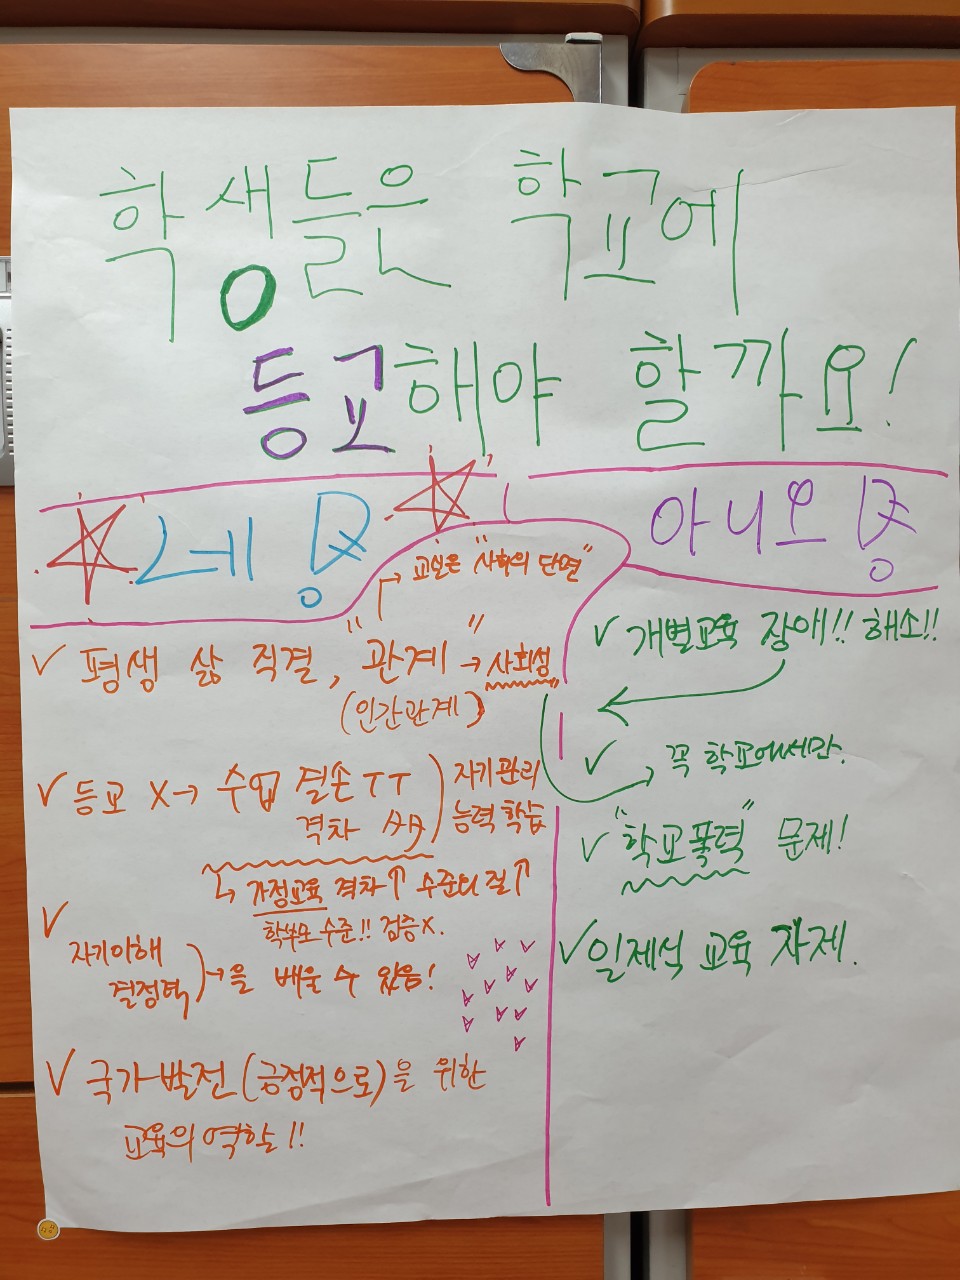 학생들은 학교에
등교해야 할까요!
네
아니오
교실은 "사회의 단면"
✓ 평생 삶 직결, "관계" → 사회성
(인간관계)
✓ 등교 X → 수업 결손 ㅜㅜ
격차
자기관리
능력 학습
↳ 가정교육 격차↑ 수준의 질↑
학부모 수준!! 검증X.
✓ 자기이해
결정력
→을 배울 수 있음!
✓ 국가발전(긍정적으로)을 위한
교육의 역할!!
✓ 개별교육 장애!! 해소!!
✓ → 꼭 학교에서만.
✓ "학교폭력" 문제!
✓ 일제식 교육 자제.